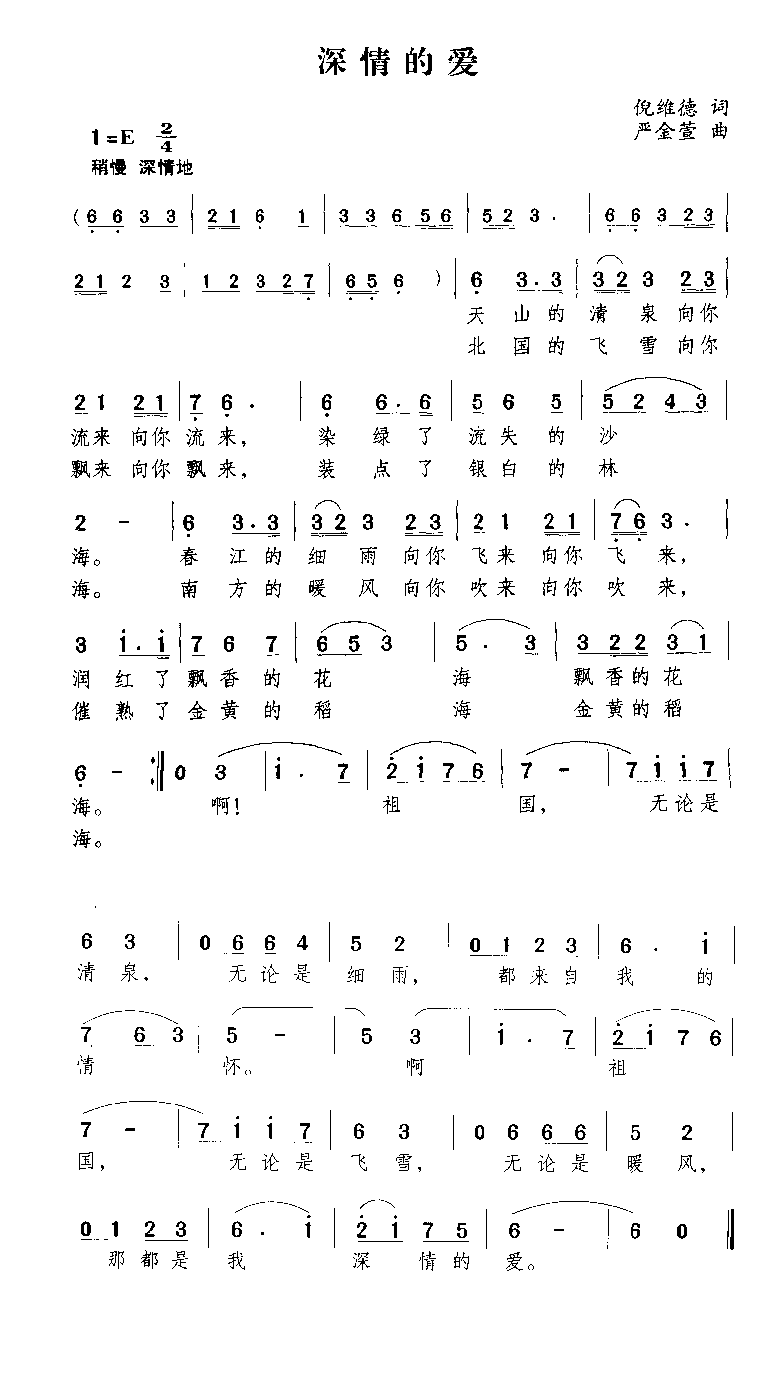 深情的爱
倪维德 词
1=E 2/4
严金萱 曲
稍慢 深情地
(6 6 3 3 | 2 1 6 1 | 3 3 6 5 6 | 5 2 3 . | 6 6 3 2 3 |
2 1 2 3 | 1 2 3 2 7 | 6 5 6 ) | 6 3 . 3 | 3 2 3 2 3 |
天 山的 清 泉 向你
北 国的 飞 雪 向你
2 1 2 1 | 7 6 . | 6 6 . 6 | 5 6 5 | 5 2 4 3 |
流来 向你 流来, 染 绿 了 流 失 的 沙
飘来 向你 飘来, 装 点 了 银 白 的 林
2 - | 6 3 . 3 | 3 2 3 2 3 | 2 1 2 1 | 7 6 3 . |
海。 春 江 的 细 雨 向你 飞 来 向你 飞 来,
海。 南 方 的 暖 风 向你 吹 来 向你 吹 来,
3 i . i | 7 6 7 | 6 5 3 | 5 . 3 | 3 2 2 3 1 |
润 红 了 飘 香 的 花 海 飘 香 的 花
催 熟 了 金 黄 的 稻 海 金 黄 的 稻
6 - :| 0 3 | i . 7 | 2 i 7 6 | 7 - | 7 i i 7 |
海。 啊! 祖 国, 无 论 是
海。
6 3 | 0 6 6 4 | 5 2 | 0 1 2 3 | 6 . i |
清 泉, 无 论 是 细 雨, 都 来 自 我 的
7 6 3 | 5 - | 5 3 | i . 7 | 2 i 7 6 |
情 怀。 啊 祖
7 - | 7 i i 7 | 6 3 | 0 6 6 6 | 5 2 |
国, 无 论 是 飞 雪, 无 论 是 暖 风,
0 1 2 3 | 6 . i | 2 i 7 5 | 6 - | 6 0 |
那 都 是 我 深 情 的 爱。